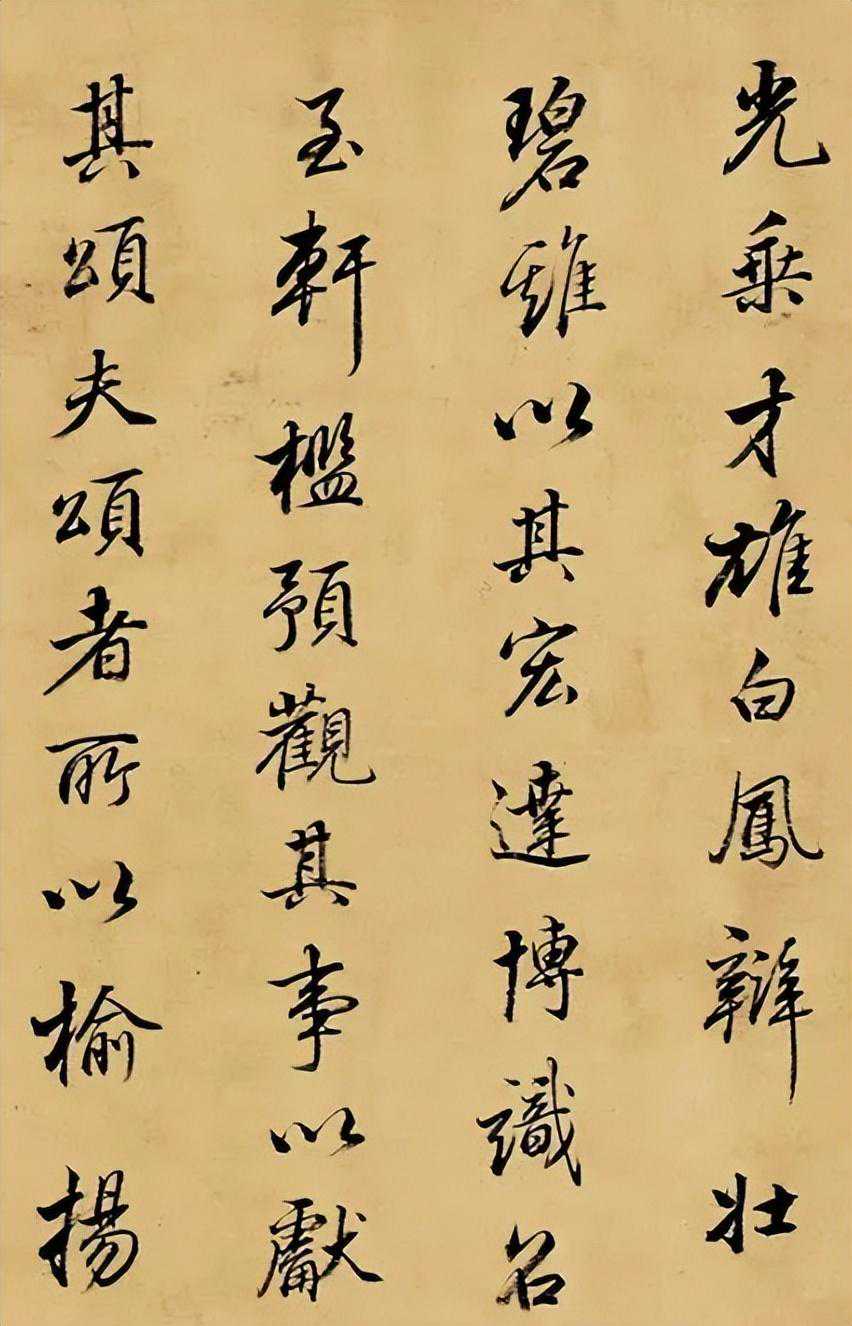 光乗才雄白鳳辯壯
碧雞以其宏達博識召
至軒檻預觀其事以獻
其頌夫頌者所以榆揚